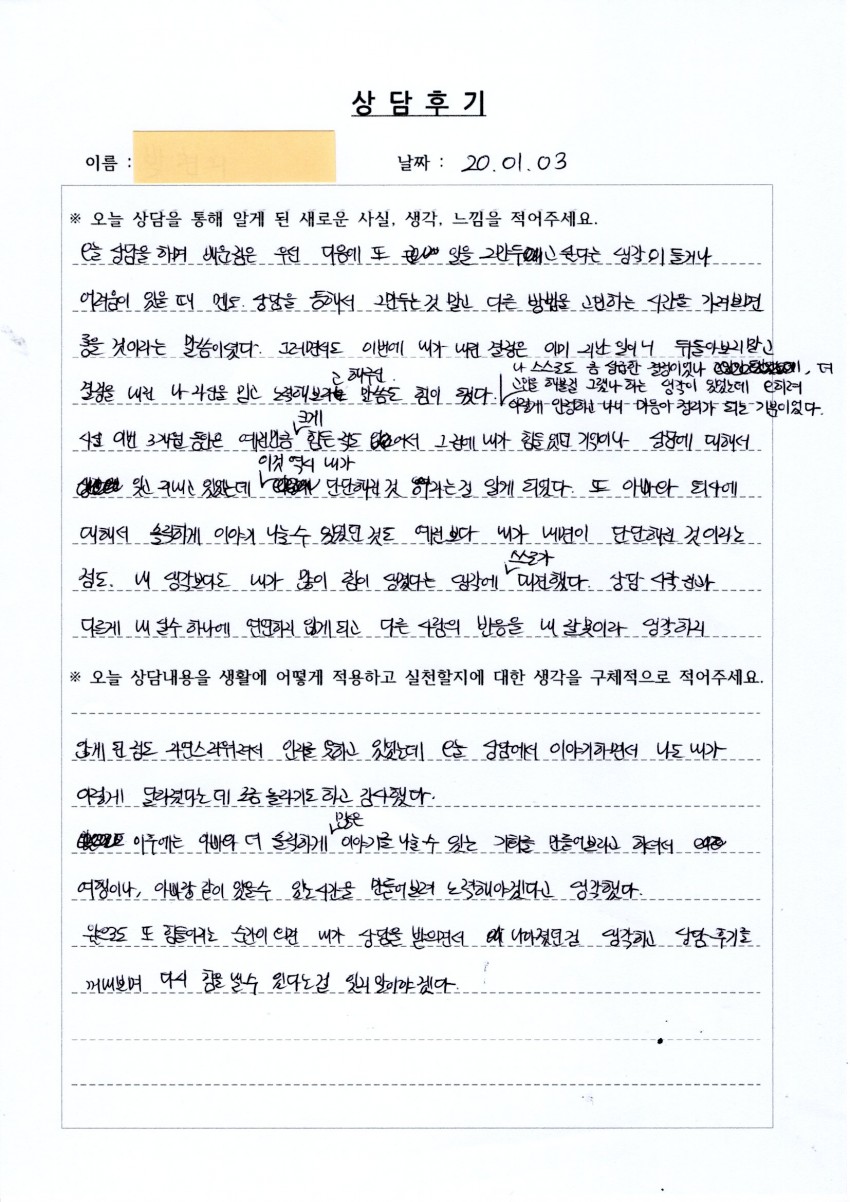 상 담 후 기
이름 :
날짜 : 20.01.03
※ 오늘 상담을 통해 알게 된 새로운 사실, 생각, 느낌을 적어주세요.
오늘 상담을 하며 배운점은 우선 다음에 또 일을 그만두고 싶다는 생각이 들거나
어려움이 있을 때 멘토. 상담을 통해서 그만두는 것 말고 다른 방법을 고민하는 시간을 가져보면
좋을 것이라는 말씀이셨다. 그러면서도 이번에 내가 내린 결정은 이미 지난 일이니 뒤돌아보지 말고
결정을 내린 나 자신을 믿고 노력해보라고 해주신 말씀도 힘이 됐다.
나 스스로도 좀 성급한 결정이었나, 더
고민을 해볼걸 그랬나 하는 생각이 있었는데 오히려
이렇게 인정하고 나니 마음이 정리가 되는 기분이었다.
사실 이번 3개월 동안은 예전만큼 크게 힘든 일도 없어서 그 전에 내가 힘들었던 기억이나 상황에 대해서
잊고 지내고 있었는데 이것 역시 내가 단단해진 것 이라는걸 알게 되었다. 또 아빠와 퇴사에
대해서 솔직하게 이야기 나눌 수 있었던 것도 예전보다 내가 내면이 단단해진 것이라는
점도. 내 생각보다도 내가 많이 힘이 생겼다는 생각에 스스로가 대견했다. 상담 시작 전과
다르게 내 실수 하나에 연연하지 않게 되고 다른 사람의 반응을 내 잘못이라 생각하지
※ 오늘 상담내용을 생활에 어떻게 적용하고 실천할지에 대한 생각을 구체적으로 적어주세요.
않게 된 점도 자연스러워져서 인지를 못하고 있었는데 오늘 상담에서 이야기하면서 나도 내가
이렇게 달라졌다는데 조금 놀라기도 하고 감사했다.
이후에는 아빠와 더 솔직하게 많은 이야기를 나눌 수 있는 기회를 만들어보라고 하셔서
여행이나, 아빠랑 같이 있을수 있는 시간을 만들어보려 노력해야겠다고 생각했다.
앞으로도 또 힘들어지는 순간이 오면 내가 상담을 받으면서 나아졌던걸 생각하고 상담 후기를
꺼내보며 다시 힘을 낼수 있다는걸 잊지 말아야겠다.